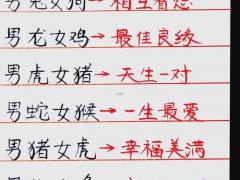 男龙女鸡→最佳良缘
男虎女猪→天生一对
男蛇女猴→一生最爱
男猪女虎→幸福美满